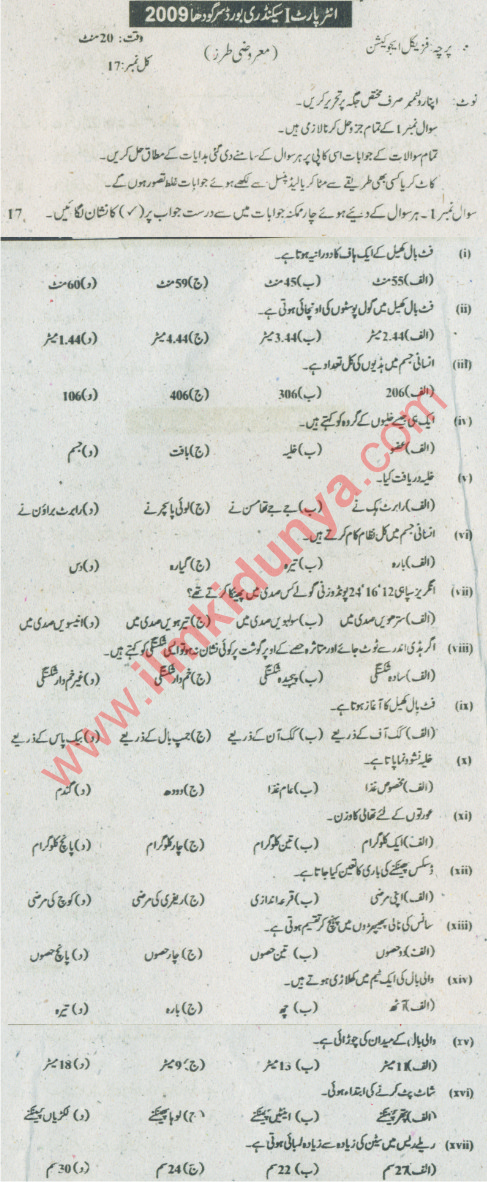 انٹر پارٹ I سیکنڈری بورڈ سرگودھا 2009
پرچہ: فزیکل ایجوکیشن (معروضی طرز) وقت: 20 منٹ
کل نمبر: 17
نوٹ: اپنا رولنمبر صرف مختص جگہ پر تحریر کریں۔
سوال نمبر 1 کے تمام جزو حل کرنا لازمی ہیں۔
تمام سوالات کے جوابات اسی کاپی پر ہر سوال کے سامنے دی گئی ہدایات کے مطابق حل کریں۔
کاٹ کر یا کسی بھی طریقے سے مٹا کر یا لیڈ پنسل سے لکھے ہوئے جوابات غلط تصور ہوں گے۔
سوال نمبر 1۔ ہر سوال کے دیئے ہوئے چار ممکنہ جوابات میں سے درست جواب پر (✓) کا نشان لگائیں۔ 17
(i) فٹ بال کھیل کے ایک ہاف کا دورانیہ ہوتا ہے۔
(الف) 55 منٹ (ب) 45 منٹ (ج) 59 منٹ (د) 60 منٹ
(ii) فٹ بال کھیل میں گول پوسٹوں کی اونچائی ہوتی ہے۔
(الف) 2.44 میٹر (ب) 3.44 میٹر (ج) 4.44 میٹر (د) 1.44 میٹر
(iii) انسانی جسم میں ہڈیوں کی کل تعداد ہے۔
(الف) 206 (ب) 306 (ج) 406 (د) 106
(iv) ایک ہی جیسے خلیوں کے گروہ کو کہتے ہیں۔
(الف) عضو (ب) خلیہ (ج) بافت (د) جسم
(v) خلیہ دریافت کیا۔
(الف) رابرٹ ہک نے (ب) جے جے تھامسن نے (ج) لوئی پاسچر نے (د) رابرٹ براؤن نے
(vi) انسانی جسم میں کل نظام کام کرتے ہیں۔
(الف) بارہ (ب) تیرہ (ج) گیارہ (د) دس
(vii) انگریز سپاہی 12، 16، 24 پونڈ وزنی گولے کس صدی میں پھینکا کرتے تھے؟
(الف) سترھویں صدی میں (ب) سولہویں صدی میں (ج) تیرہویں صدی میں (د) انیسویں صدی میں
(viii) اگر ہڈی اندر سے ٹوٹ جائے اور متاثرہ حصے کے اوپر گوشت پر کوئی نشان نہ ہو تو ایسی شکستگی کو کہتے ہیں۔
(الف) سادہ شکستگی (ب) پیچیدہ شکستگی (ج) خم دار شکستگی (د) غیر خم دار شکستگی
(ix) فٹ بال کھیل کا آغاز ہوتا ہے۔
(الف) کک آف کے ذریعے (ب) کک آن کے ذریعے (ج) جمپ بال کے ذریعے (د) بیک پاس کے ذریعے
(x) خلیہ نشوونما پاتا ہے۔
(الف) مخصوص غذا (ب) عام غذا (ج) دودھ (د) گندم
(xi) عورتوں کے لئے تھالی کا وزن۔
(الف) ایک کلوگرام (ب) تین کلوگرام (ج) چار کلوگرام (د) پانچ کلوگرام
(xii) ڈسکس پھینکنے کی باری کا تعین کیا جاتا ہے۔
(الف) اپنی مرضی (ب) قرعہ اندازی (ج) ریفری کی مرضی (د) کوچ کی مرضی
(xiii) سانس کی نالی پھیپھڑوں میں پہنچ کر تقسیم ہوتی ہے۔
(الف) دو حصوں (ب) تین حصوں (ج) چار حصوں (د) پانچ حصوں
(xiv) والی بال کی ایک ٹیم میں کھلاڑی ہوتے ہیں۔
(الف) آٹھ (ب) چھ (ج) بارہ (د) تیرہ
(xv) والی بال کے میدان کی چوڑائی ہے۔
(الف) 11 میٹر (ب) 13 میٹر (ج) 9 میٹر (د) 18 میٹر
(xvi) شاٹ پٹ کرنے کی ابتداء ہوئی۔
(الف) پتھر پھینکنے (ب) اینٹیں پھینکنے (ج) لوہا پھینکنے (د) لکڑیاں پھینکنے
(xvii) ریلے ریس میں بیٹن کی زیادہ سے زیادہ لمبائی ہوتی ہے۔
(الف) 27 سم (ب) 22 سم (ج) 24 سم (د) 30 سم
www.ilmkidunya.com